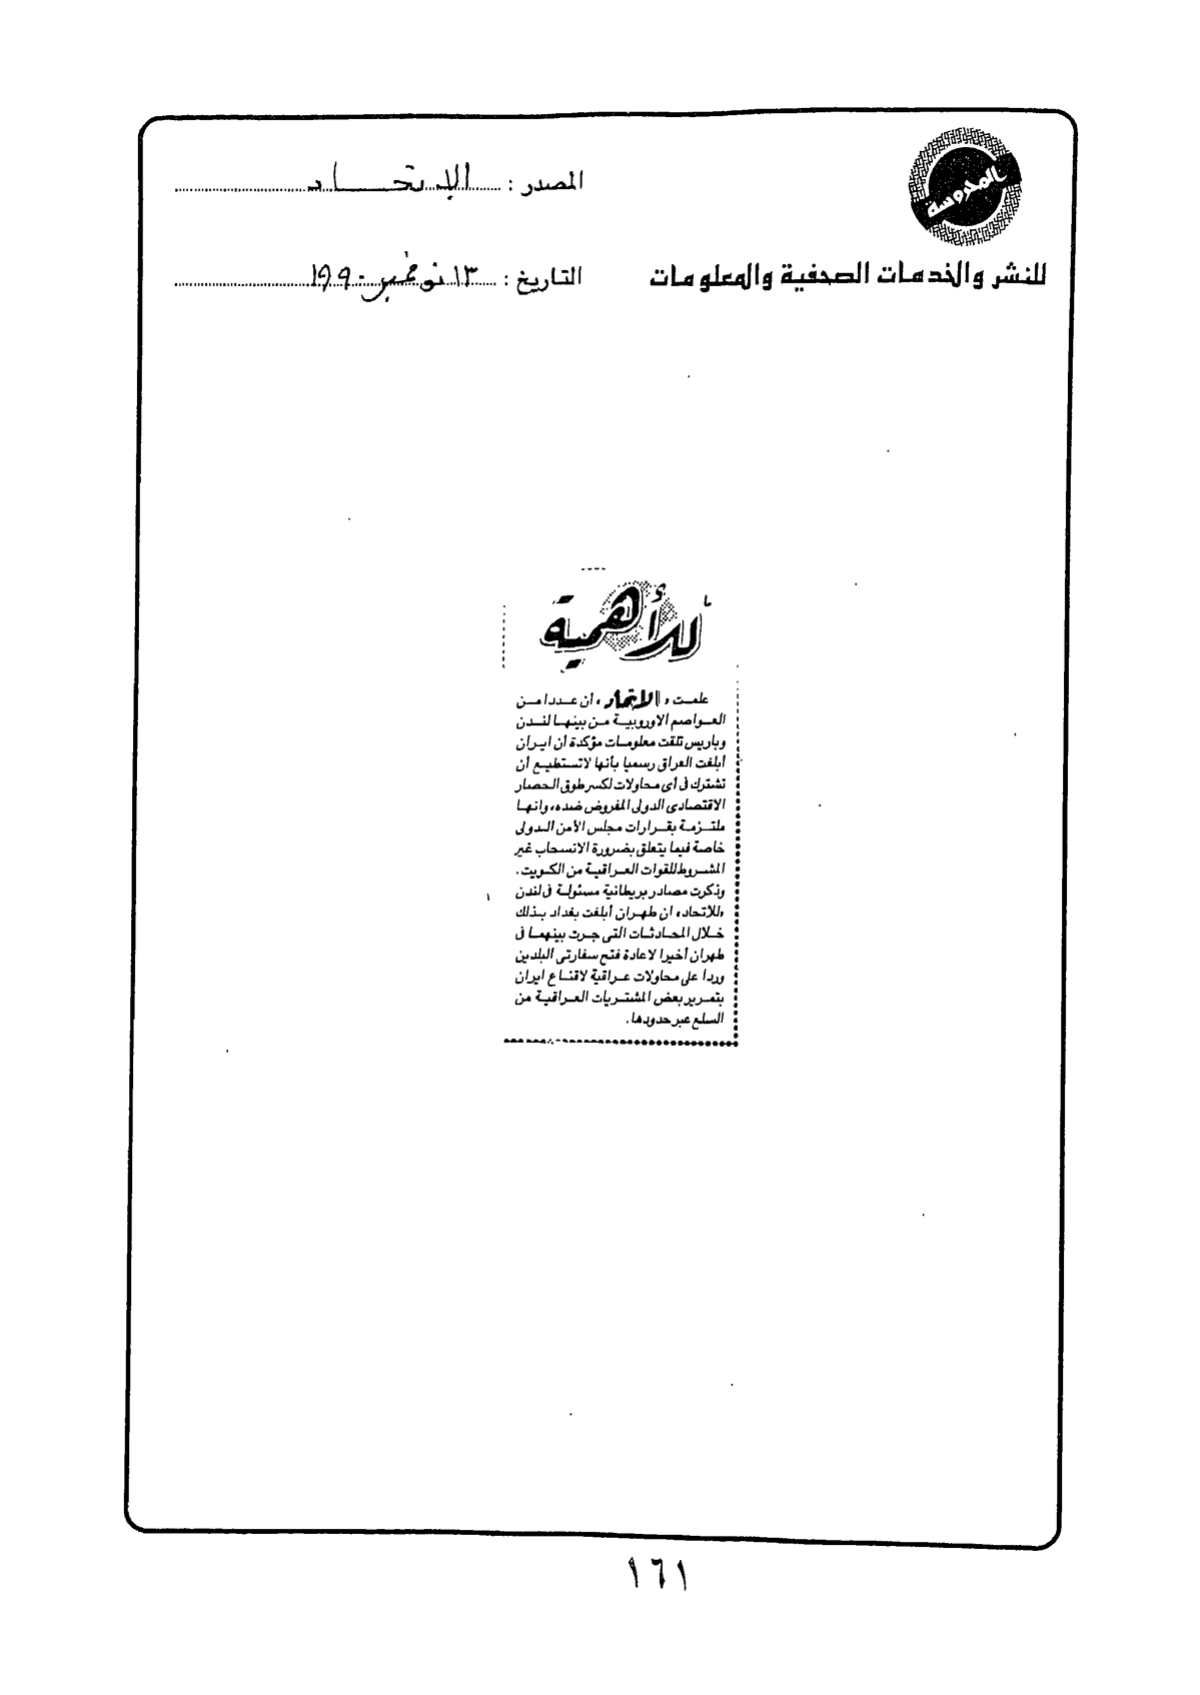 المحروسة
المصدر : الإتحاد
للنشر والخدمات الصحفية والمعلومات
التاريخ : ١٣ نوفمبر ١٩٩٠
للأهمية
علمت « الاتحاد » أن عددا من
العواصم الاوروبية من بينها لندن
وباريس تلقت معلومات مؤكدة أن ايران
أبلغت العراق رسميا بأنها لاتستطيع أن
تشترك فى أى محاولات لكسر طوق الحصار
الاقتصادى الدولى المفروض ضده، وانها
ملتزمة بقرارات مجلس الأمن الدولى
خاصة فيما يتعلق بضرورة الانسحاب غير
المشروط للقوات العراقية من الكويت.
وذكرت مصادر بريطانية مسئولة فى لندن
«للاتحاد» ان طهران أبلغت بغداد بذلك
خلال المحادثات التى جرت بينهما فى
طهران أخيرا لاعادة فتح سفارتى البلدين
وردا على محاولات عراقية لاقناع ايران
بتمرير بعض المشتريات العراقية من
السلع عبر حدودها.
١٦١